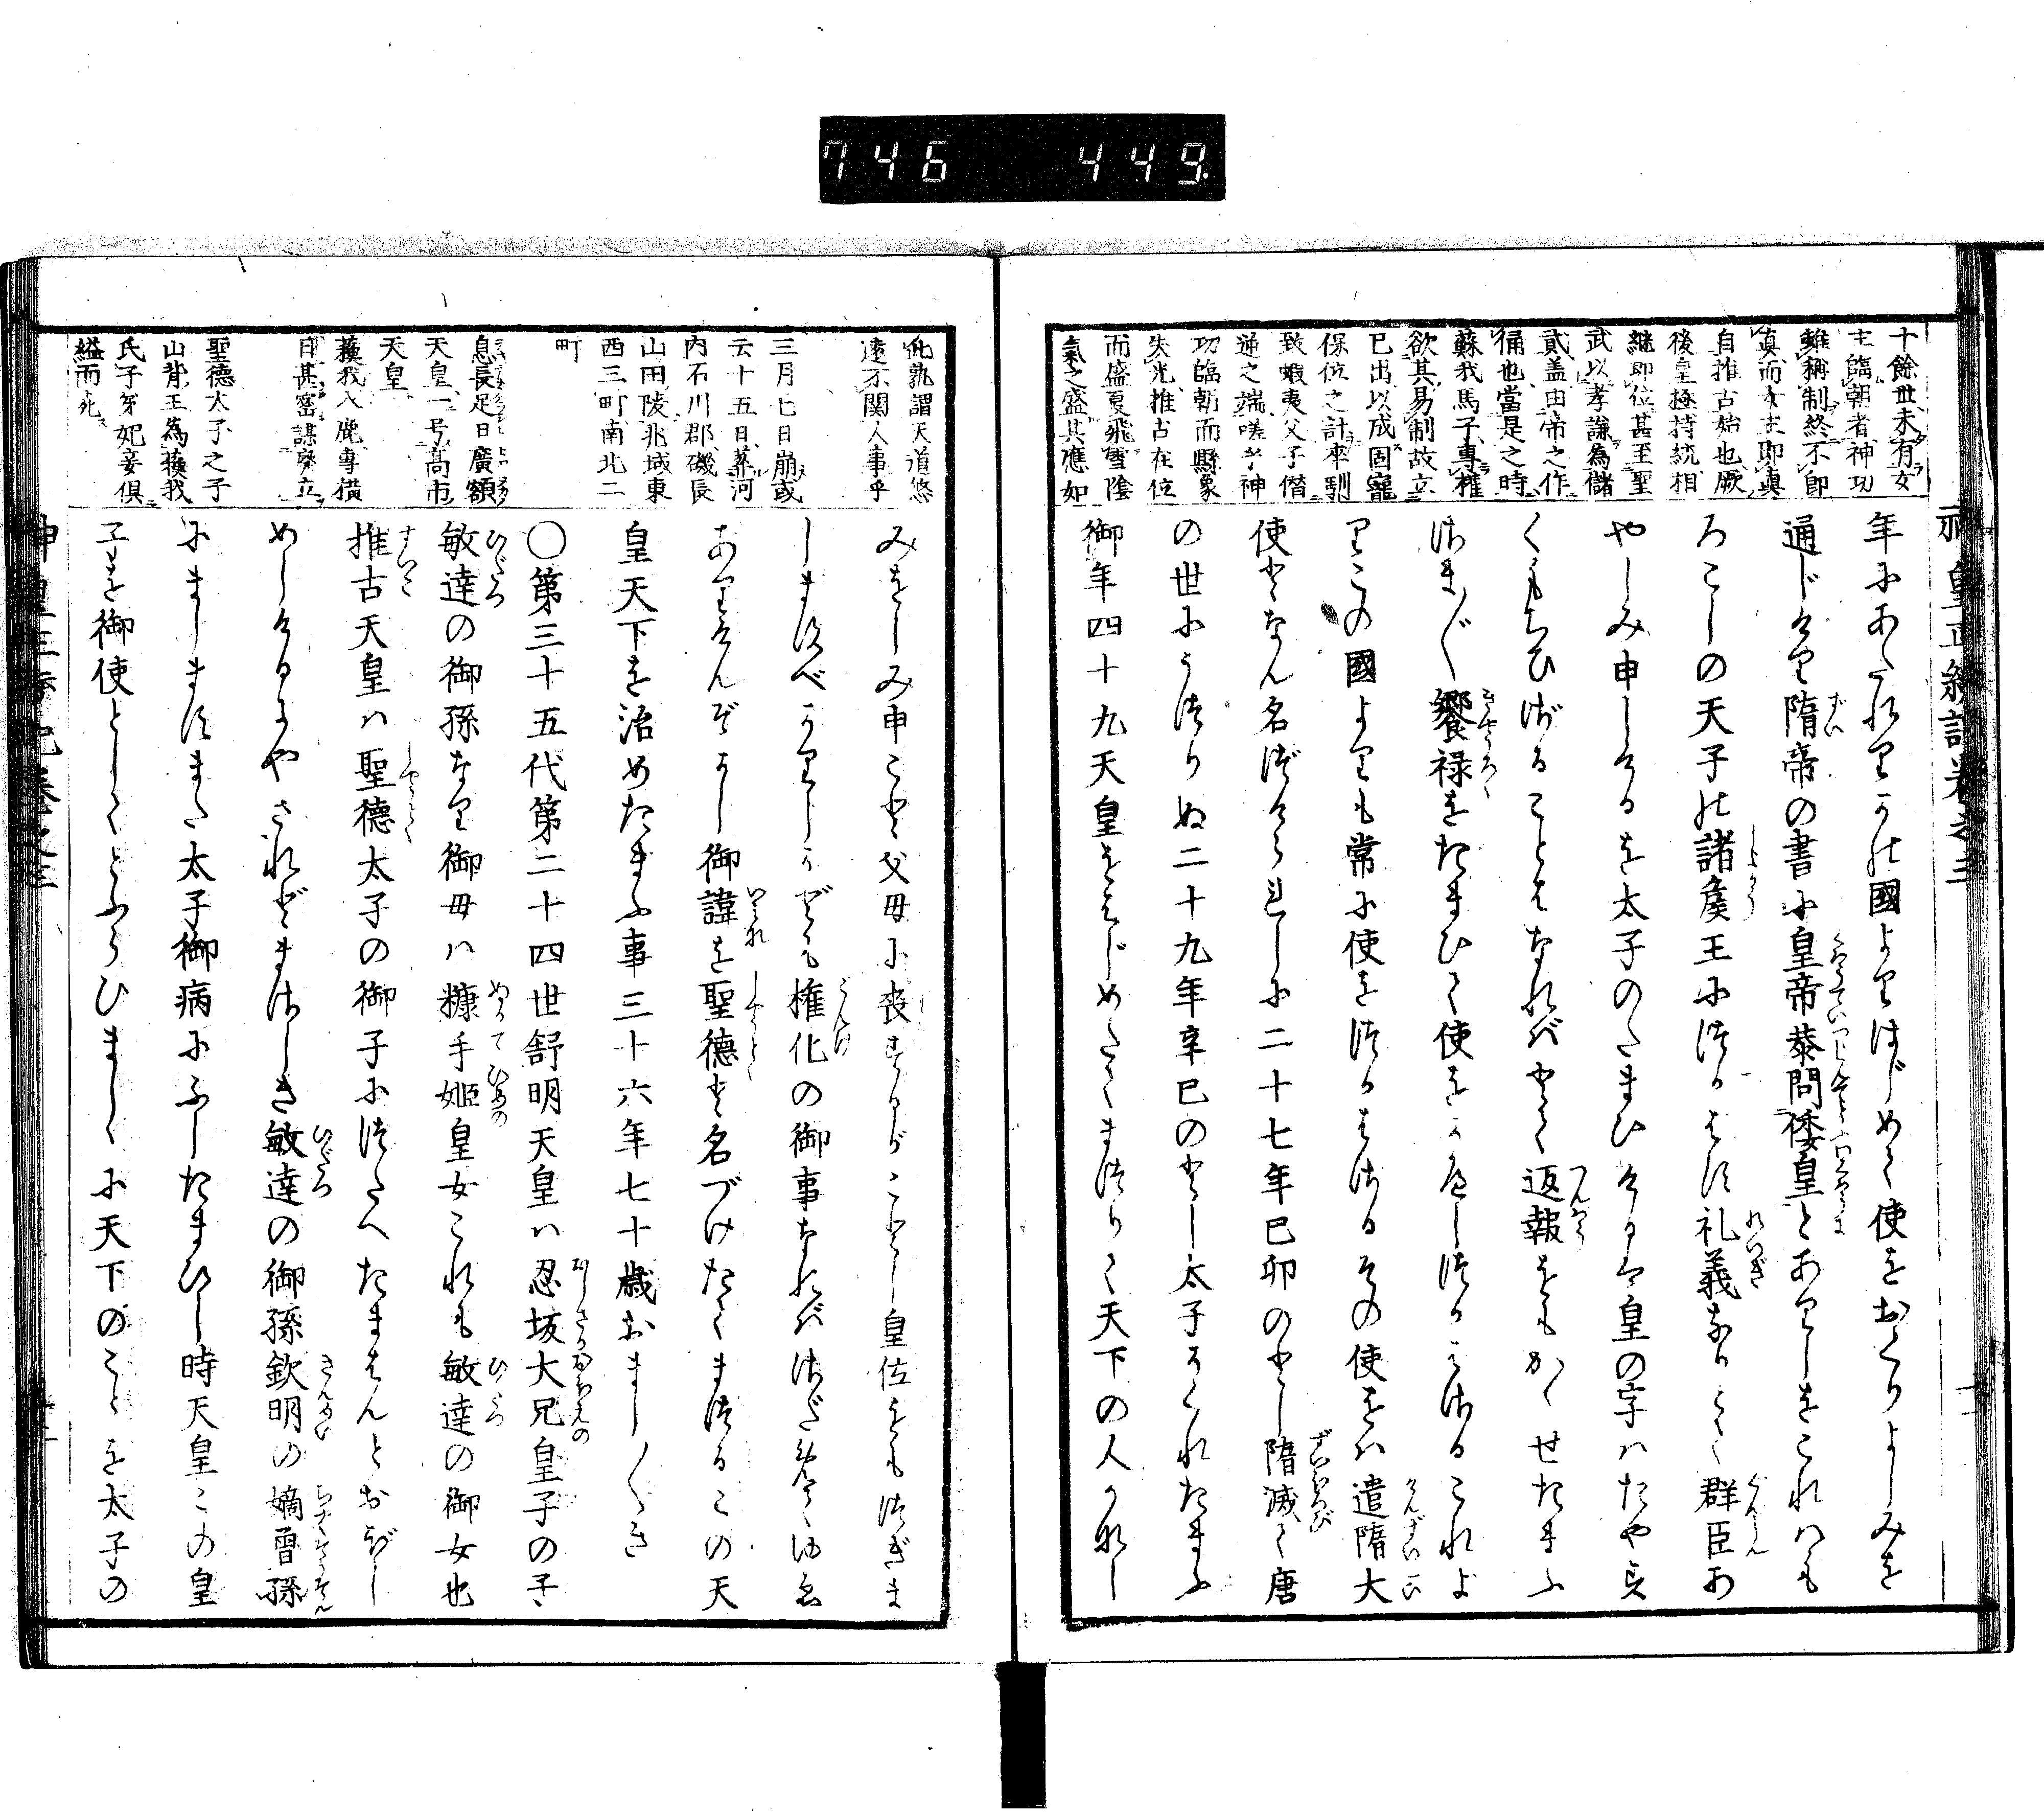 746 449
神皇正統記卷之三
十餘世未有女
主臨朝者神功
雖稱制終不即
真而女主即真
自推古始也厥
後皇極持統相
繼即位甚至聖
武以孝謙為儲
貳盖由帝之作
俑也當是之時
蘇我馬子專権
欲其易制故立
已出以成固寵
保位之計率馴
致蝦夷父子僭
逼之端嗟乎神
功臨朝而縣象
失光推古在位
而盛夏飛雪陰
氣之盛其應如
年にあたれりかの國よりはじめて使をおくりよしみを
通じけり隋帝の書に皇帝恭問倭皇とありしをこれハも
ろこしの天子の諸侯王につかはす礼義なりとて群臣あ
やしみ申しけるを太子のたまひけるは皇の字ハたやす
くもちひざることはなれバとて返報をもかゝせたまふ
さま〴〵饗禄をたまひて使をかへしつかはさるこれよ
りこの國よりも常に使をつかはさるその使をバ遣隋大
使となん名づけられしに二十七年己卯のとし隋滅て唐
の世にうつりぬ二十九年辛巳のとし太子かくれたまふ
御年四十九天皇をはじめたてまつりて天下の人かなし
此孰謂天道悠
遠不関人事乎
三月七日崩或
云十五日葬河
内石川郡磯長
山田陵兆域東
西三町南北二
町
息長足日廣額
天皇一号高市
天皇
蘇我入鹿專横
日甚密謀癈立
聖德太子之子
山背王為蘇我
氏子弟妃妾倶
縊而死
みをしみ申こと父母に喪するがごとし皇位をもつぎま
しますべかりしかども権化の御事なれバさだめてゆゑ
ありけんぞかし御諱を聖德と名づけたてまつるこの天
皇天下を治めたまふ事三十六年七十歳おまし〳〵き
○第三十五代第二十四世舒明天皇ハ忍坂大兄皇子の子
敏達の御孫なり御母ハ糠手姫皇女これも敏達の御女也
推古天皇ハ聖德太子の御子につたへたまはんとおぼし
めしけるにやされどまさしき敏達の御孫欽明の嫡曽孫
にましますまた太子御病にふしたまひし時天皇この皇
子を御使としてとふらひましゝに天下のことを太子の
神皇正統記卷之三